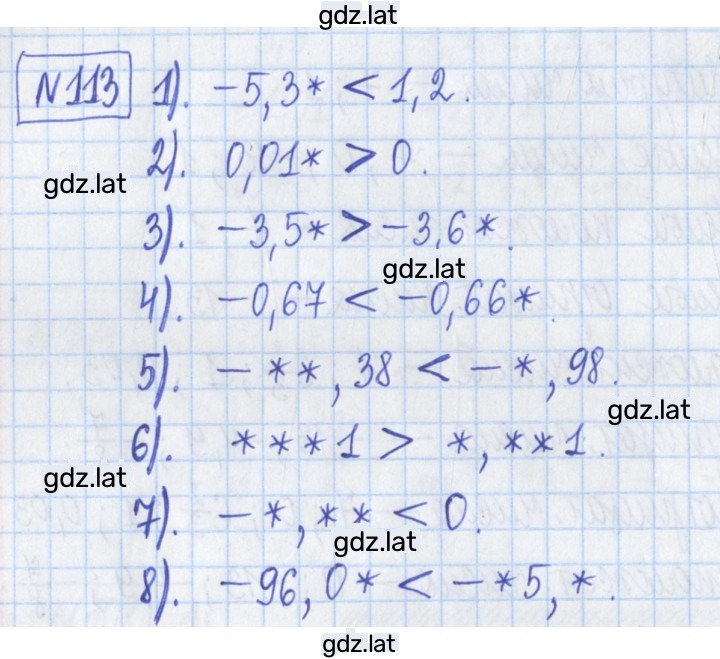 gdz.lat
№113 1). -5,3* < 1,2.
2). 0,01* > 0.
gdz.lat
3). -3,5* > -3,6*.
gdz.lat
4). -0,67 < -0,66*.
5). -**,38 < -*,98.
gdz.lat
6). ***1 > *,**1.
gdz.lat
7). -*,** < 0.
gdz.lat
8). -96,0* < -*5,*.
gdz.lat